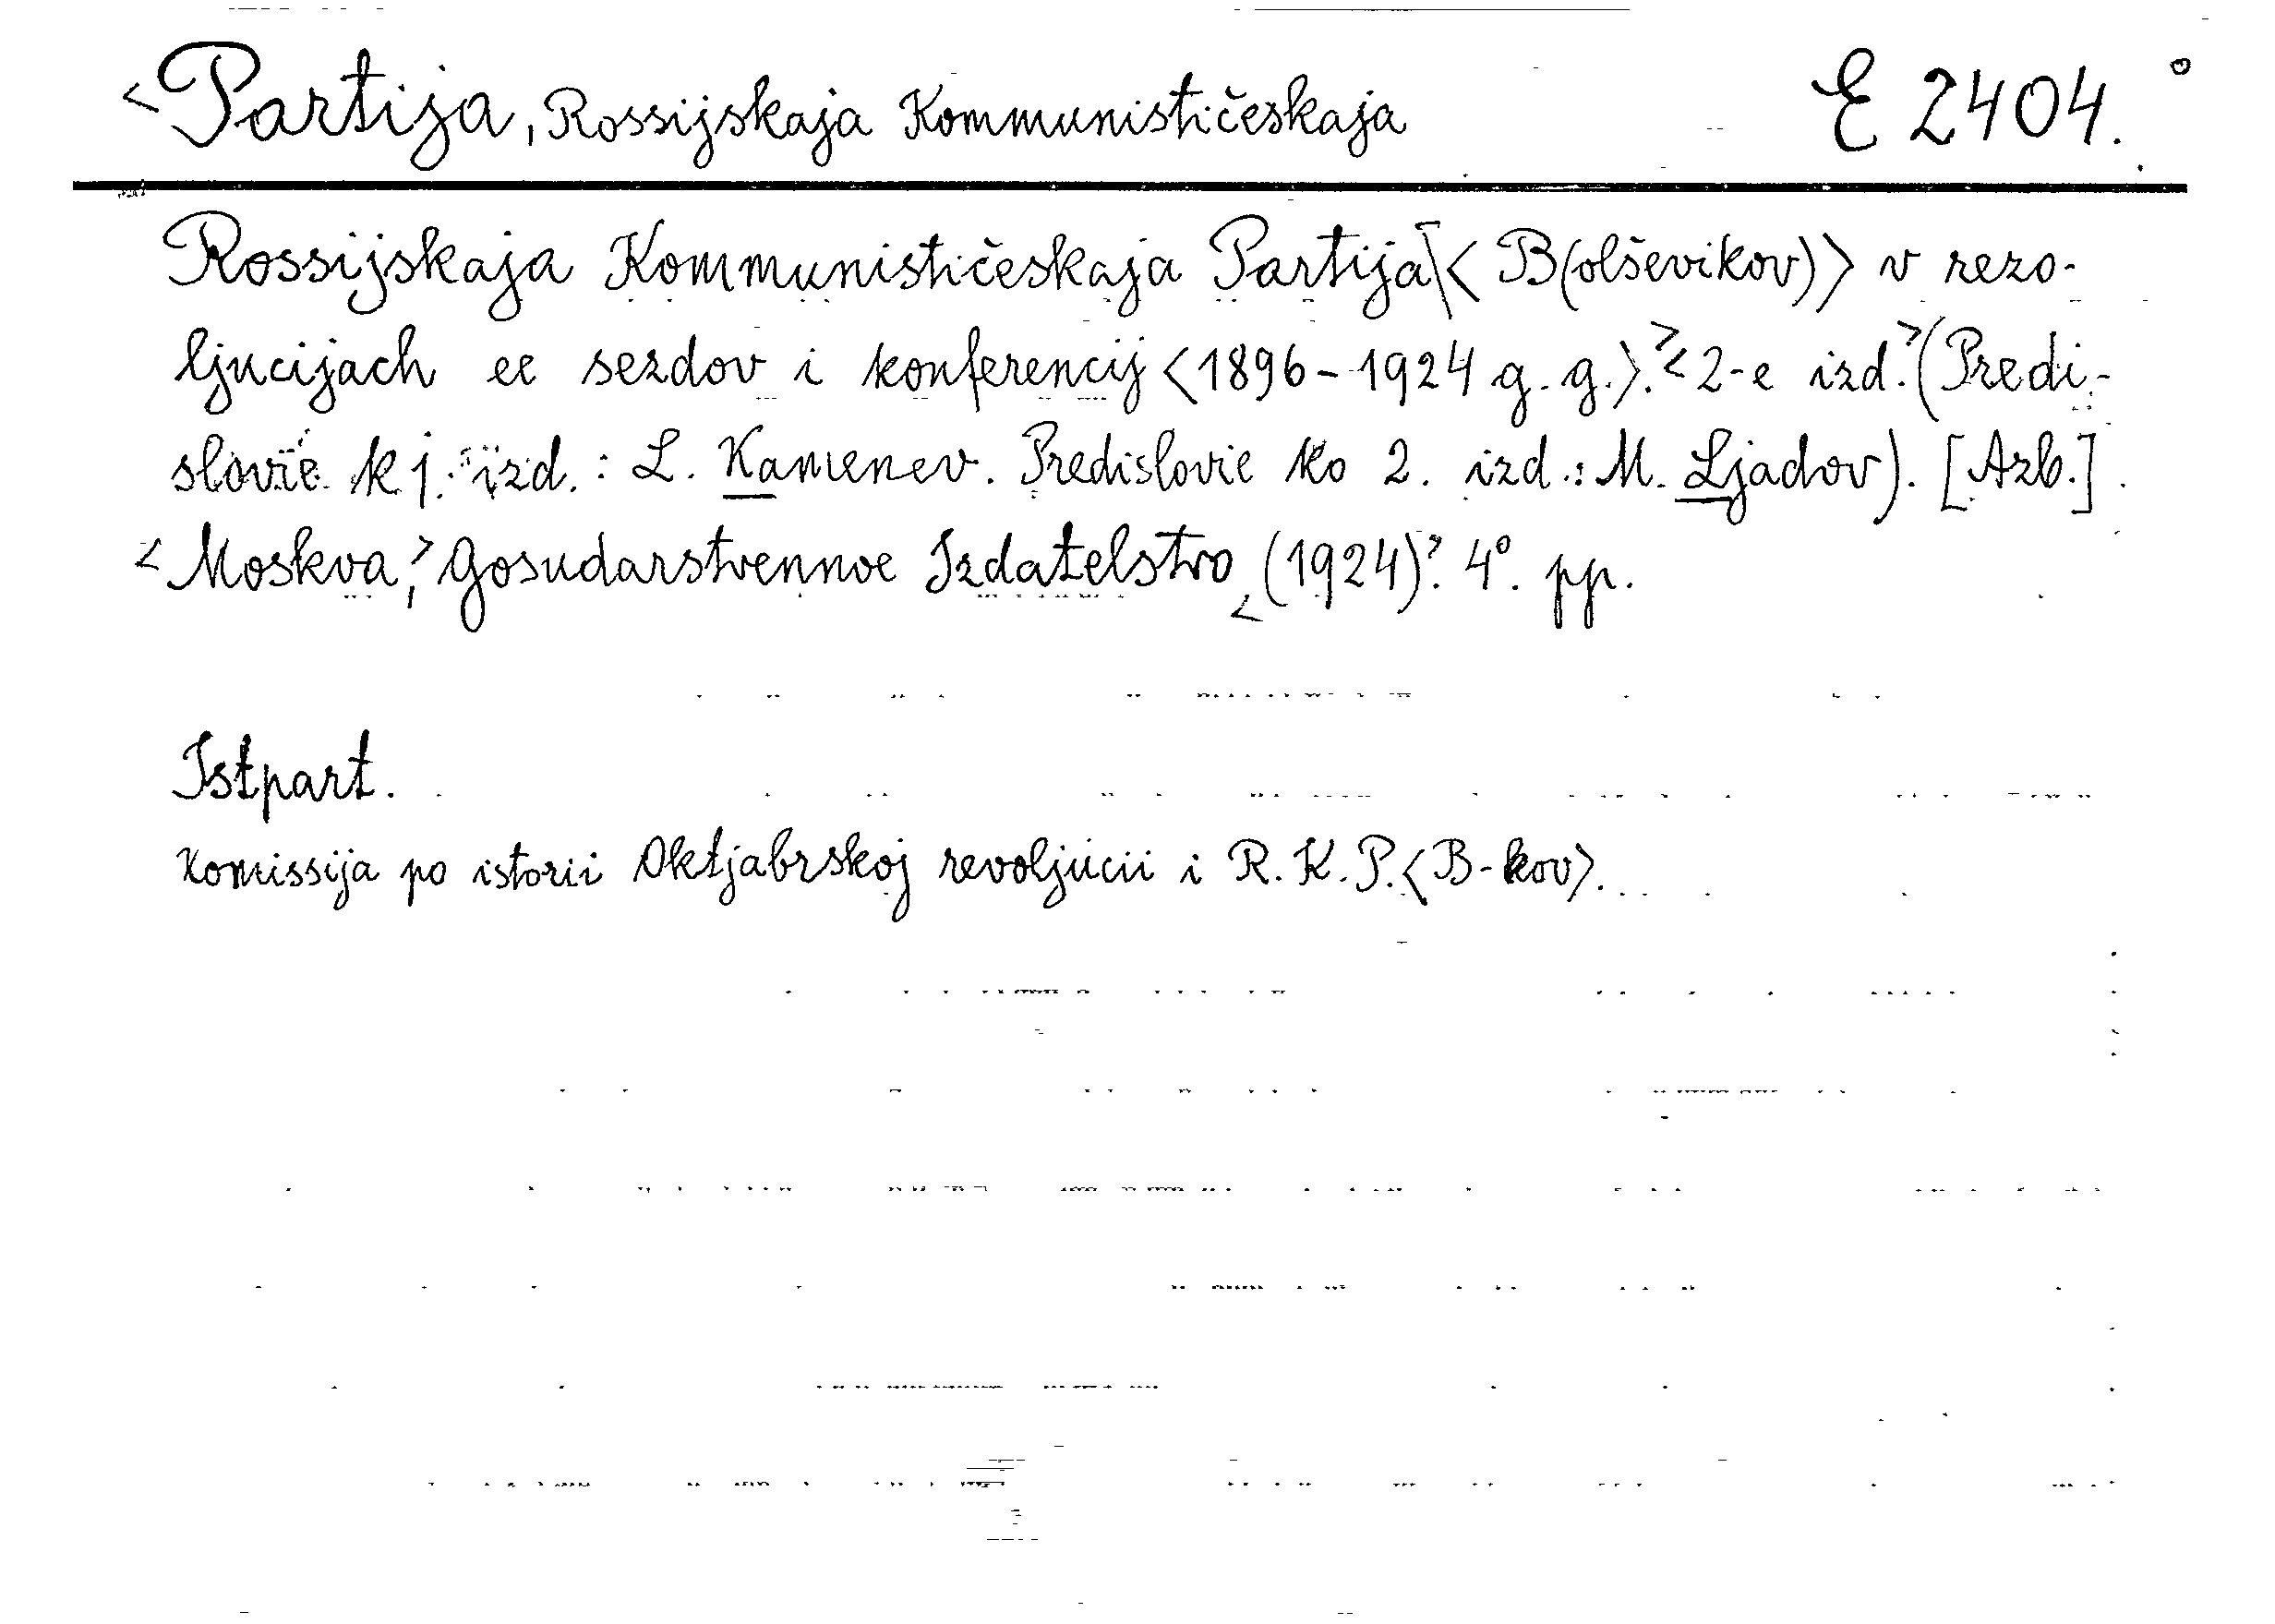 <Partija, Rossijskaja Kommunističeskaja E 2404.°
Rossijskaja Kommunističeskaja Partija < B(olševikov)> v rezo-
ljucijach ee sezdov i konferencij <1896-1924 g. g.>.> <2-e izd.> (Predi-
slovie k 1. izd.: L. Kamenev. Predislovie ko 2. izd.: M. Ljadov). [Azb.]
<Moskva,> Gosudarstvennoe Izdatelstvo <(1924)>. 4°. pp.
Istpart.
Komissija po istorii Oktjabrskoj revoljucii i R. K. P. <B-kov>.